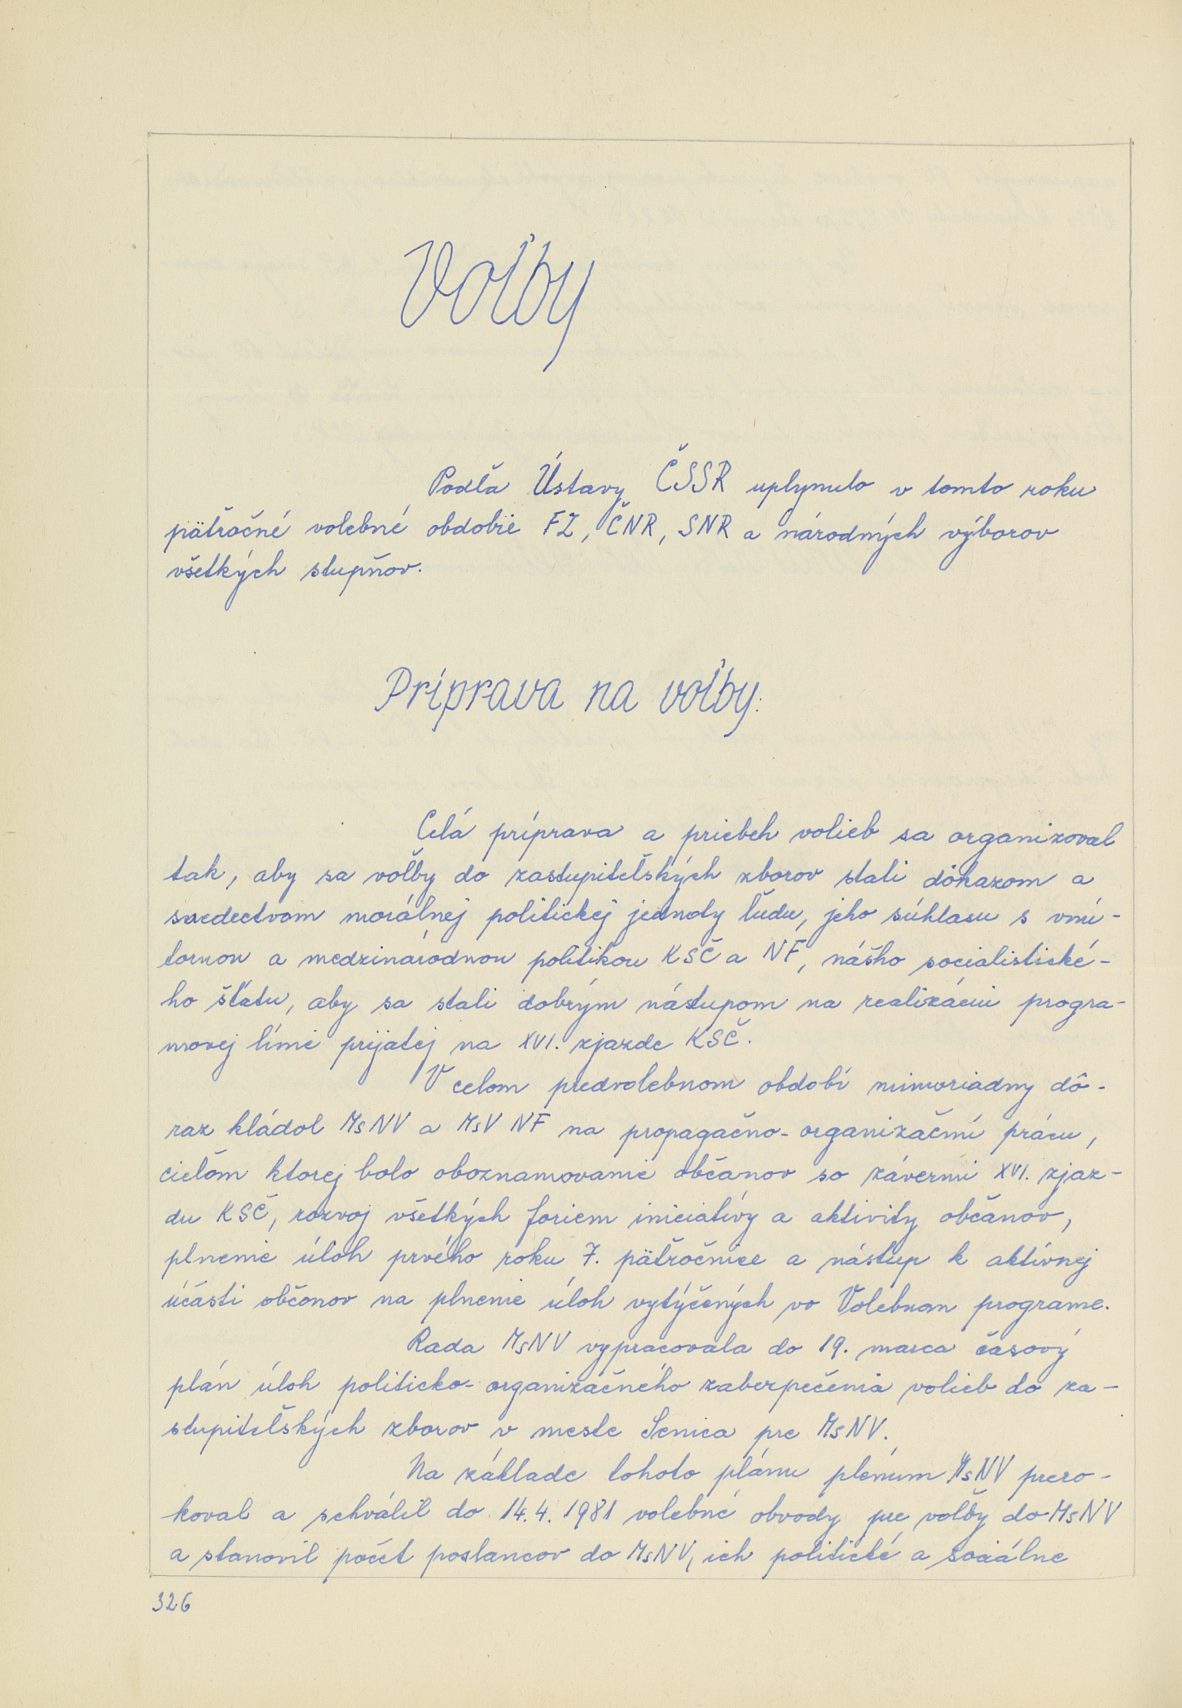 Voľby
Podľa Ústavy ČSSR uplynulo v tomto roku
päťročné volebné obdobie FZ, ČNR, SNR a národných výborov
všetkých stupňov.
Príprava na voľby:
Celá príprava a priebeh volieb sa organizoval
tak, aby sa voľby do zastupiteľských zborov stali dôkazom a
svedectvom morálnej politickej jednoty ľudu, jeho súhlasu s vnú-
tornou a medzinárodnou politikou KSČ a NF, nášho socialistické-
ho štátu, aby sa stali dobrým nástupom na realizáciu progra-
movej línie prijatej na XVI. zjazde KSČ.
V celom predvolebnom období mimoriadny dô-
raz kládol MsNV a MsV NF na propagačno-organizačnú prácu,
cieľom ktorej bolo oboznamovanie občanov so závermi XVI. zjaz-
du KSČ, rozvoj všetkých foriem iniciatívy a aktivity občanov,
plnenie úloh prvého roku 7. päťročnice a nástup k aktívnej
účasti občanov na plnenie úloh vytýčených vo Volebnom programe.
Rada MsNV vypracovala do 19. marca časový
plán úloh politicko-organizačného zabezpečenia volieb do za-
stupiteľských zborov v meste Senica pre MsNV.
Na základe tohoto plánu plénum MsNV prero-
koval a schválil do 14.4.1981 volebné obvody pre voľby do MsNV
a stanovil počet poslancov do MsNV, ich politické a sociálne
326